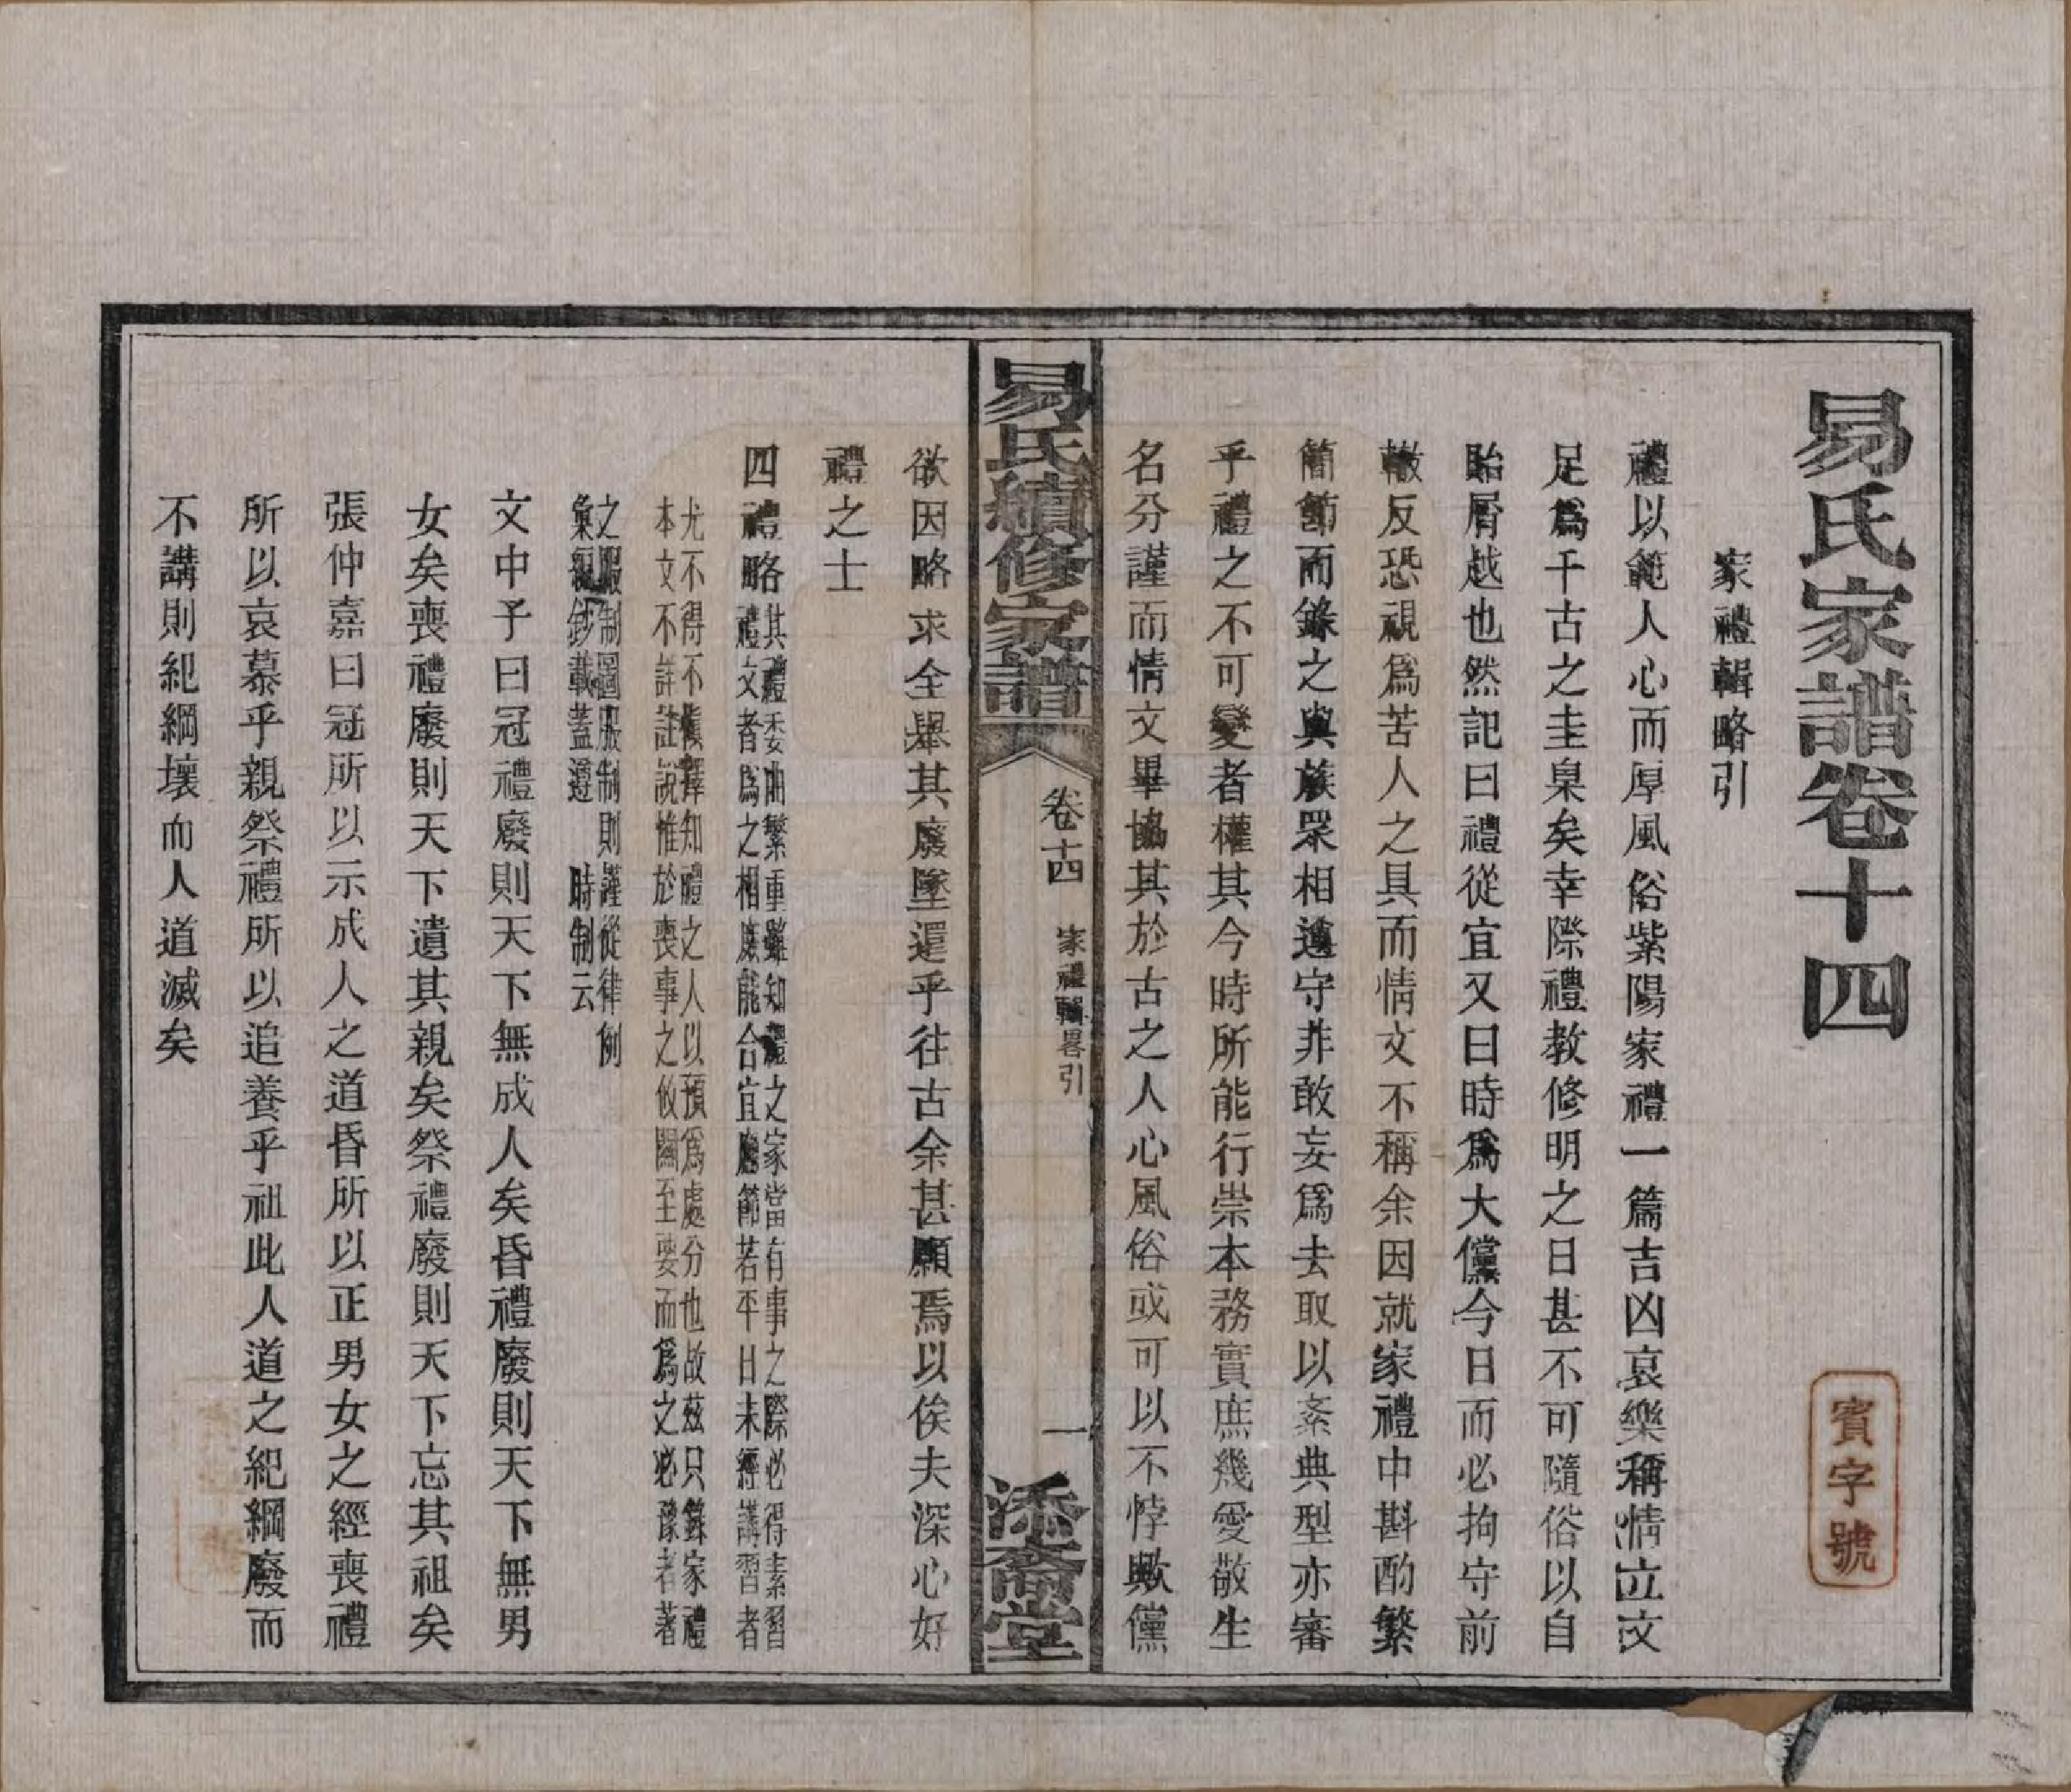 易氏家譜卷十四
賓字號
家禮輯略引
禮以範人心而厚風俗紫陽家禮一篇吉凶哀樂稱情立文
足爲千古之圭臬矣幸際禮教修明之日甚不可隨俗以自
貽屑越也然記曰禮從宜又曰時爲大儻今日而必拘守前
轍反恐視爲苦人之具而情文不稱余因就家禮中斟酌繁
簡節而錄之與族眾相遵守非敢妄爲去取以紊典型亦審
乎禮之不可變者權其今時所能行崇本務實庶幾愛敬生
名分謹而情文畢協其於古之人心風俗或可以不悖歟儻
易氏續修家譜
卷十四
家禮輯畧引
一
添裔堂
欲因略求全舉其廢墜還乎往古余甚願焉以俟夫深心好
禮之士
四禮略
其禮委曲繁重雖知禮之家當有事之際必得素習
禮文者爲之相庶能合宜應節若平日未經講習者
尤不得不慎擇知禮之人以預爲處分也故茲只錄家禮
本文不詳註說惟於喪事之攸關至要而爲之必豫者著
之服制圖服制則謹從律例
彙親鈔載蓋遵時制云
文中子曰冠禮廢則天下無成人矣昏禮廢則天下無男
女矣喪禮廢則天下遺其親矣祭禮廢則天下忘其祖矣
張仲嘉曰冠所以示成人之道昏所以正男女之經喪禮
所以哀慕乎親祭禮所以追養乎祖此人道之紀綱廢而
不講則紀綱壞而人道滅矣